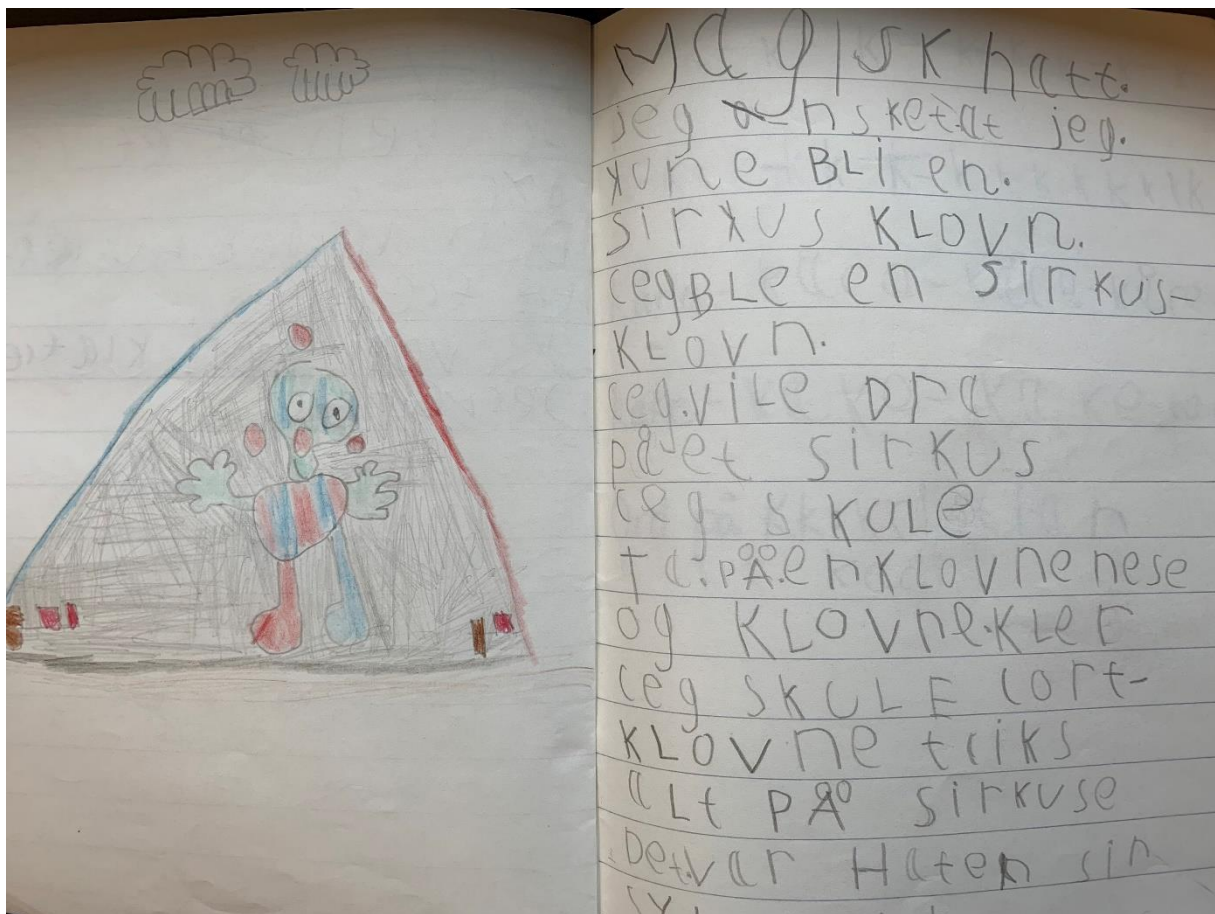 MagISK hatt.
jeg ønsket.at jeg.
kune BLi en.
sirkus KLOVn.
jegBLe en sirkus-
KLOVn.
jeg.viLe Dra
på et sirkus
jeg sKULe
ta.PÅ.enKLOVnenese
og KLOVne.KLer
jeg SKULE jort-
KLOVne triks
aLt PÅ sirkuse
Det.var Haten sin